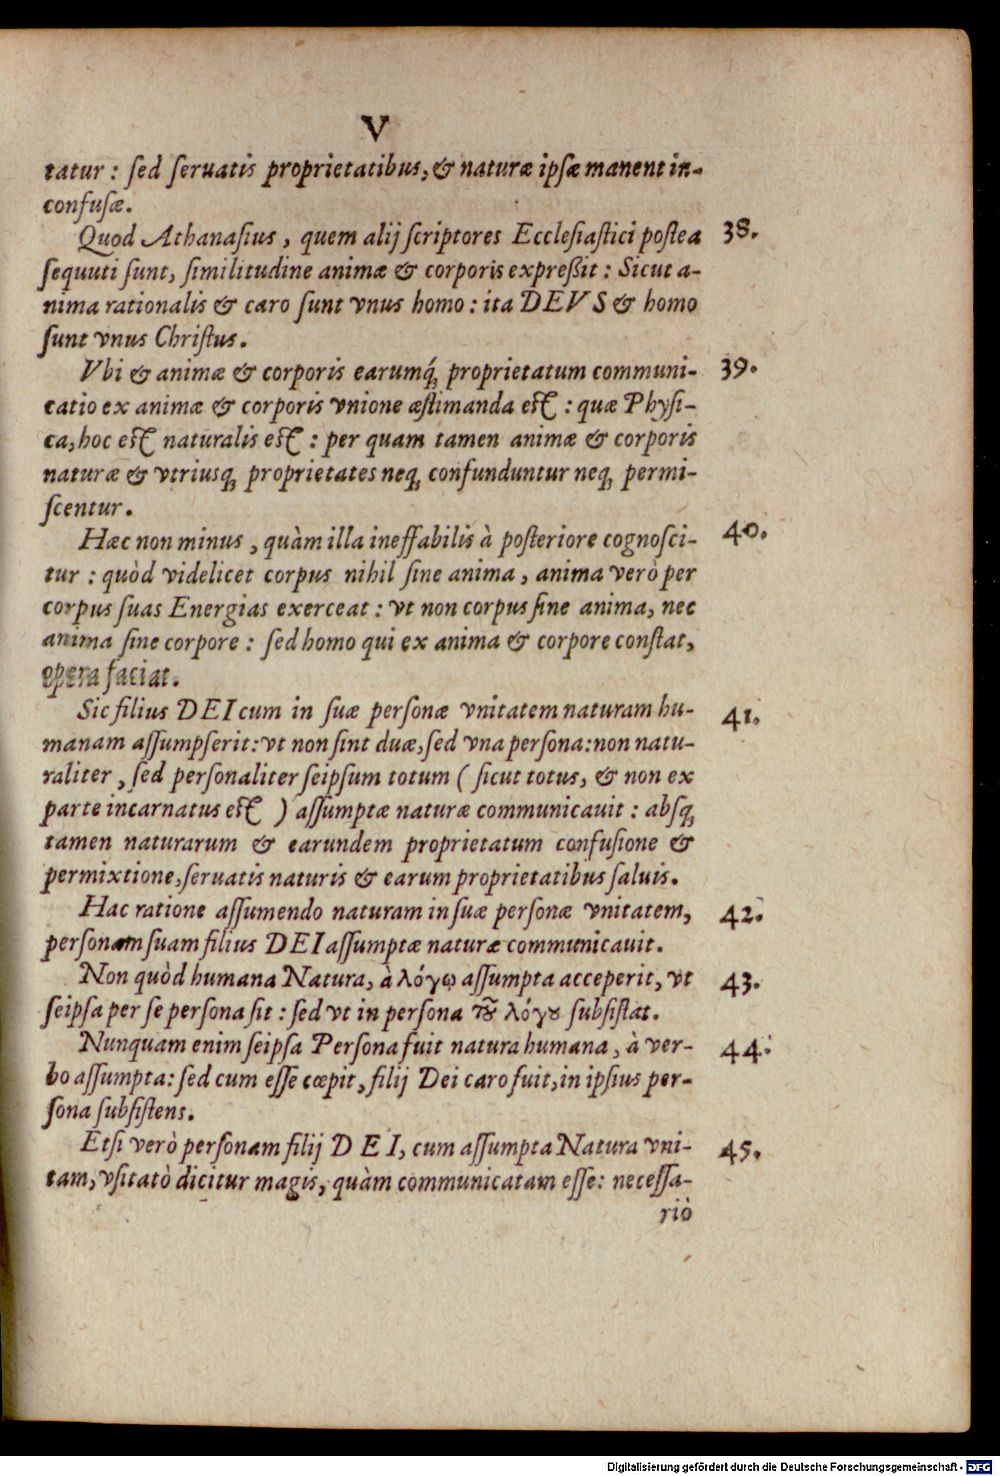 V
tatur: sed seruatis proprietatibus, & naturæ ipsæ manent in-
confusæ.
Quod Athanasius, quem alij scriptores Ecclesiastici postea 38.
sequuti sunt, similitudine animæ & corporis expreßit: Sicut a-
nima rationalis & caro sunt vnus homo: ita DEVS & homo
sunt vnus Christus.
Vbi & animæ & corporis earumq́; proprietatum communi- 39.
catio ex animæ & corporis vnione æstimanda est: quæ Physi-
ca, hoc est naturalis est: per quam tamen animæ & corporis
naturæ & vtriusq; proprietates neq; confunduntur neq; permi-
scentur.
Hæc non minus, quàm illa ineffabilis à posteriore cognosci- 40.
tur: quòd videlicet corpus nihil sine anima, anima verò per
corpus suas Energias exerceat: vt non corpus sine anima, nec
anima sine corpore: sed homo qui ex anima & corpore constat,
opera faciat.
Sic filius DEI cum in suæ personæ vnitatem naturam hu- 41.
manam assumpserit: vt non sint duæ, sed vna persona: non natu-
raliter, sed personaliter seipsum totum (sicut totus, & non ex
parte incarnatus est) assumptæ naturæ communicauit: absq;
tamen naturarum & earundem proprietatum confusione &
permixtione, seruatis naturis & earum proprietatibus saluis.
Hac ratione assumendo naturam in suæ personæ vnitatem, 42.
personam suam filius DEI assumptæ naturæ communicauit.
Non quòd humana Natura, à λόγῳ assumpta acceperit, vt 43.
seipsa per se persona sit: sed vt in persona τȣ͂ λόγȣ subsistat.
Nunquam enim seipsa Persona fuit natura humana, à ver- 44.
bo assumpta: sed cum esse cœpit, filij Dei caro fuit, in ipsius per-
sona subsistens.
Etsi verò personam filij DEI, cum assumpta Natura vni- 45.
tam, vsitatò dicitur magis, quàm communicatam esse: necessa-
riò
Digitalisierung gefördert durch die Deutsche Forschungsgemeinschaft - DFG